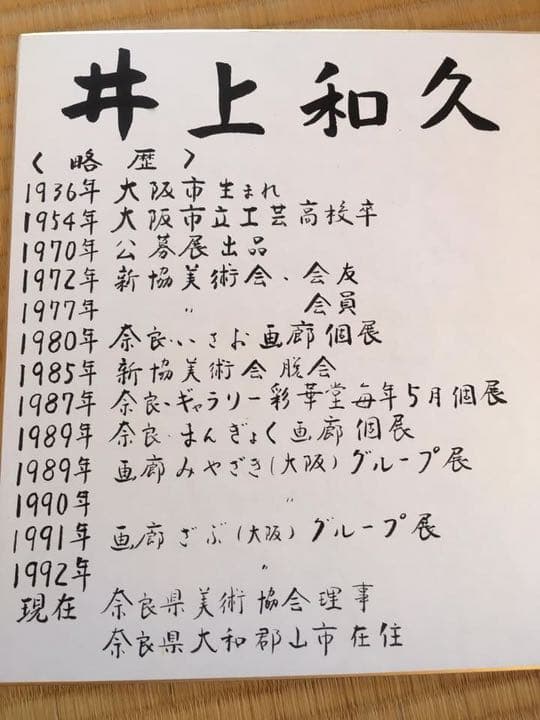 井上和久
〈略歴〉
1936年 大阪市生まれ
1954年 大阪市立工芸高校卒
1970年 公募展出品
1972年 新協美術会、会友
1977年 〃 会員
1980年 奈良・いさお画廊個展
1985年 新協美術会脱会
1987年 奈良・ギャラリー彩華堂毎年5月個展
1989年 奈良・まんぎょく画廊個展
1989年 画廊みやざき(大阪)グループ展
1990年 〃
1991年 画廊ざぶ(大阪)グループ展
1992年 〃
現在 奈良県美術協会理事
奈良県大和郡山市在住